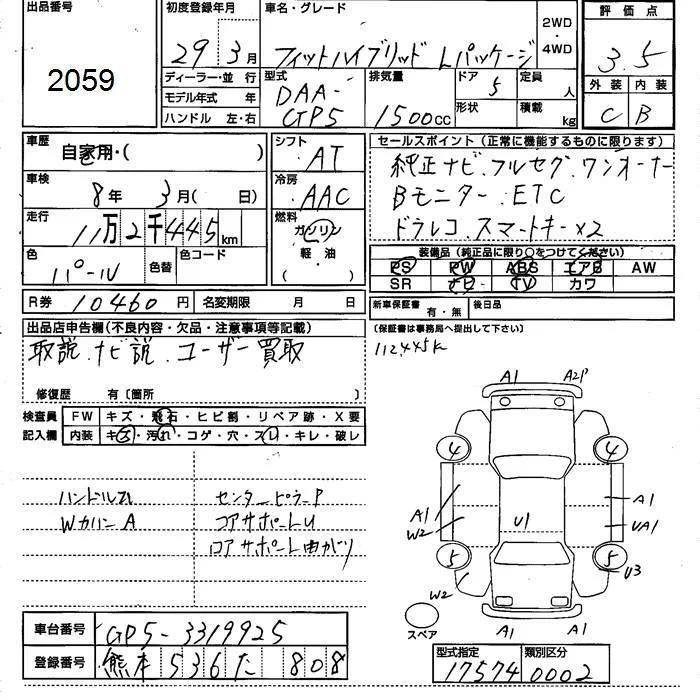 出品番号
2059
初度登録年月
29年3月
ディーラー・並行
モデル年式 年
ハンドル 左・右
車名・グレード
フィットハイブリッド Lパッケージ
2WD
・
4WD
型式
DAA-
GP5
排気量
1500cc
ドア
5
定員
人
形状
積載
kg
評価点
3.5
外装 内装
C B
車歴
自家用・( )
車検
8年 3月( 日)
走行
11万2千445km
色
パール
色替
色コード
シフト
AT
冷房
AAC
燃料
ガソリン
軽・油
( )
セールスポイント(正常に機能するものに限ります)
純正ナビ.フルセグ.ワンオーナー
Bモニター.ETC
ドラレコ.スマートキー×2
装備品(純正品に限り○をつけてください)
PS PW ABS エアB AW
SR ナビ TV カワ
R券 10460円
名変期限 月 日
新車保証書 有・無
後日品
(保証書は事務局へ提出して下さい)
出品店申告欄(不良内容・欠品・注意事項等記載)
取説.ナビ説.ユーザー買取
112,445K
修復歴 有〔箇所 〕
検査員
記入欄
FW キズ・飛石・ヒビ割・リペア跡・X要
内装 キズ・汚れ・コゲ・穴・スレ・キレ・破レ
センターピラーP
WカバーA
コアサポートU
コアサポート曲がり
A1 A2P
4 4
A1 A1
W2 U1 UA1
5 5
U3
W2
A1 A1
スペア
車台番号 GP5-3319925
登録番号 熊本 536 た 808
型式指定 類別区分
17574 0002